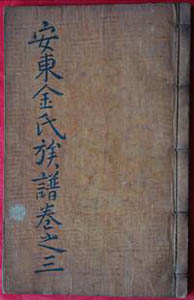 安東金氏族譜卷之三